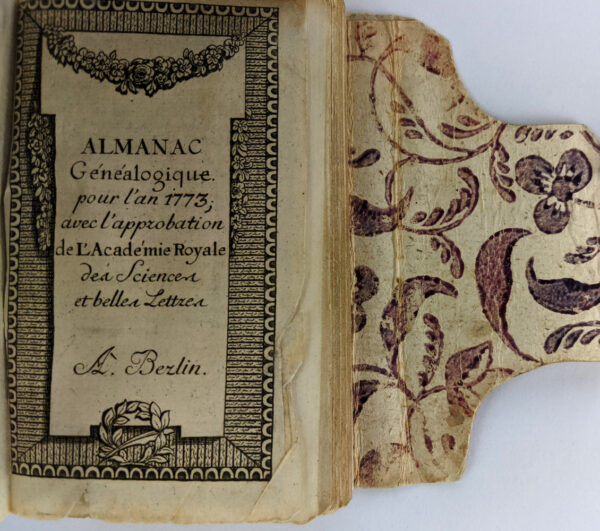 ALMANAC
Généalogique
pour l'an 1773;
avec l'approbation
de L'Académie Royale
des Sciences
et belles Lettres
A. Berlin.